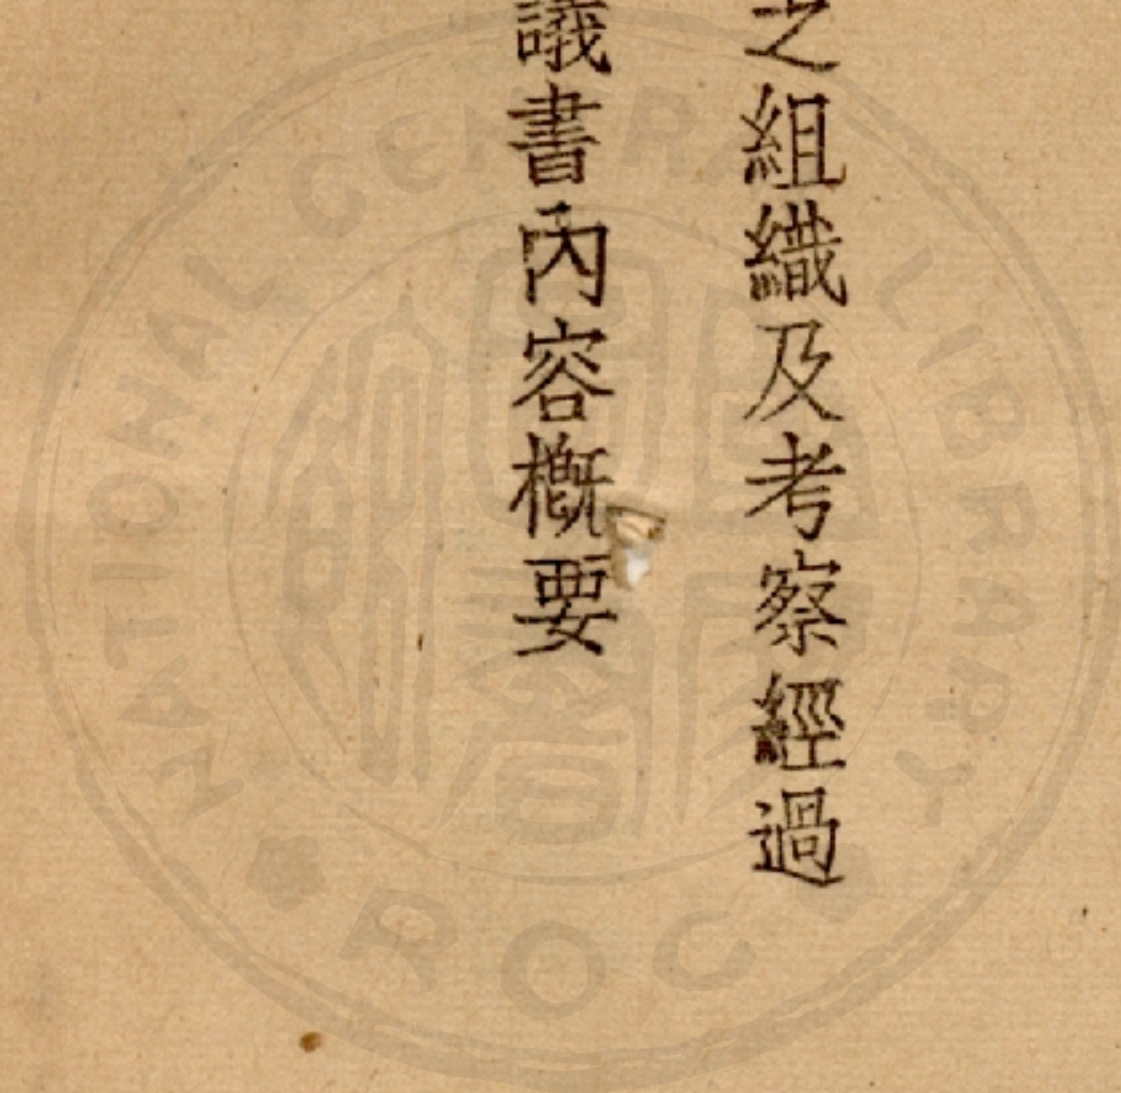 之組織及考察經過
議書內容概要
NATIONAL CENTRAL LIBRARY
ROC